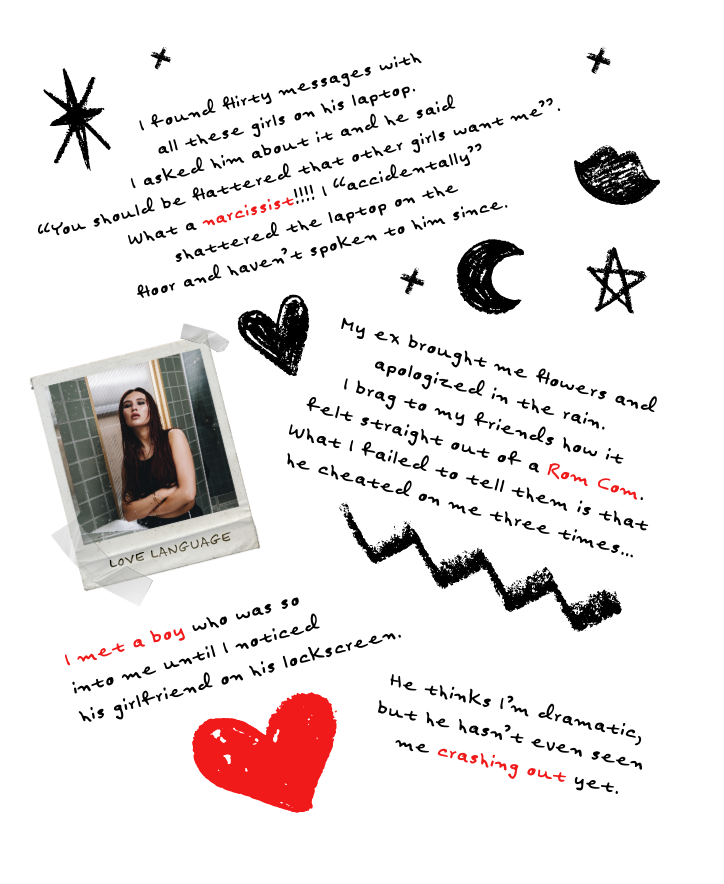 I found flirty messages with
all these girls on his laptop.
I asked him about it and he said
“You should be flattered that other girls want me”.
What a narcissist!!!! I “accidentally”
shattered the laptop on the
floor and haven't spoken to him since.
My ex brought me flowers and
apologized in the rain.
I brag to my friends how it
felt straight out of a Rom Com.
What I failed to tell them is that
he cheated on me three times...
LOVE LANGUAGE
I met a boy who was so
into me until I noticed
his girlfriend on his lockscreen.
He thinks I'm dramatic,
but he hasn't even seen
me crashing out yet.